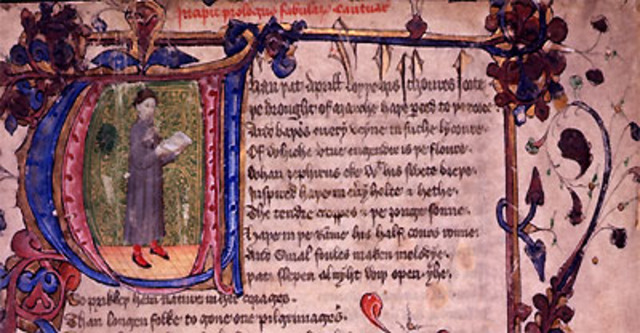 Incipit prologus fabularum Cantuar
Whan þat Aprill schoures soote
þe drought of Marche haþe perced to þe roote
And baþed euery veyne in suche lycoure
Of whiche vertue engendred is þe floure
Whan zephirus eke wt his swete breþe
Inspired haþe in euery holte & heþe
The tendre croppes & þe ȝonge sonne
Haþe in þe Ramme his half cours ronne
And smal foules maken melodye
þat slepen al nyght wiþ open yhe
So prikkeþ hem nature in her corages
Than longen folke to gone on pilgrimages